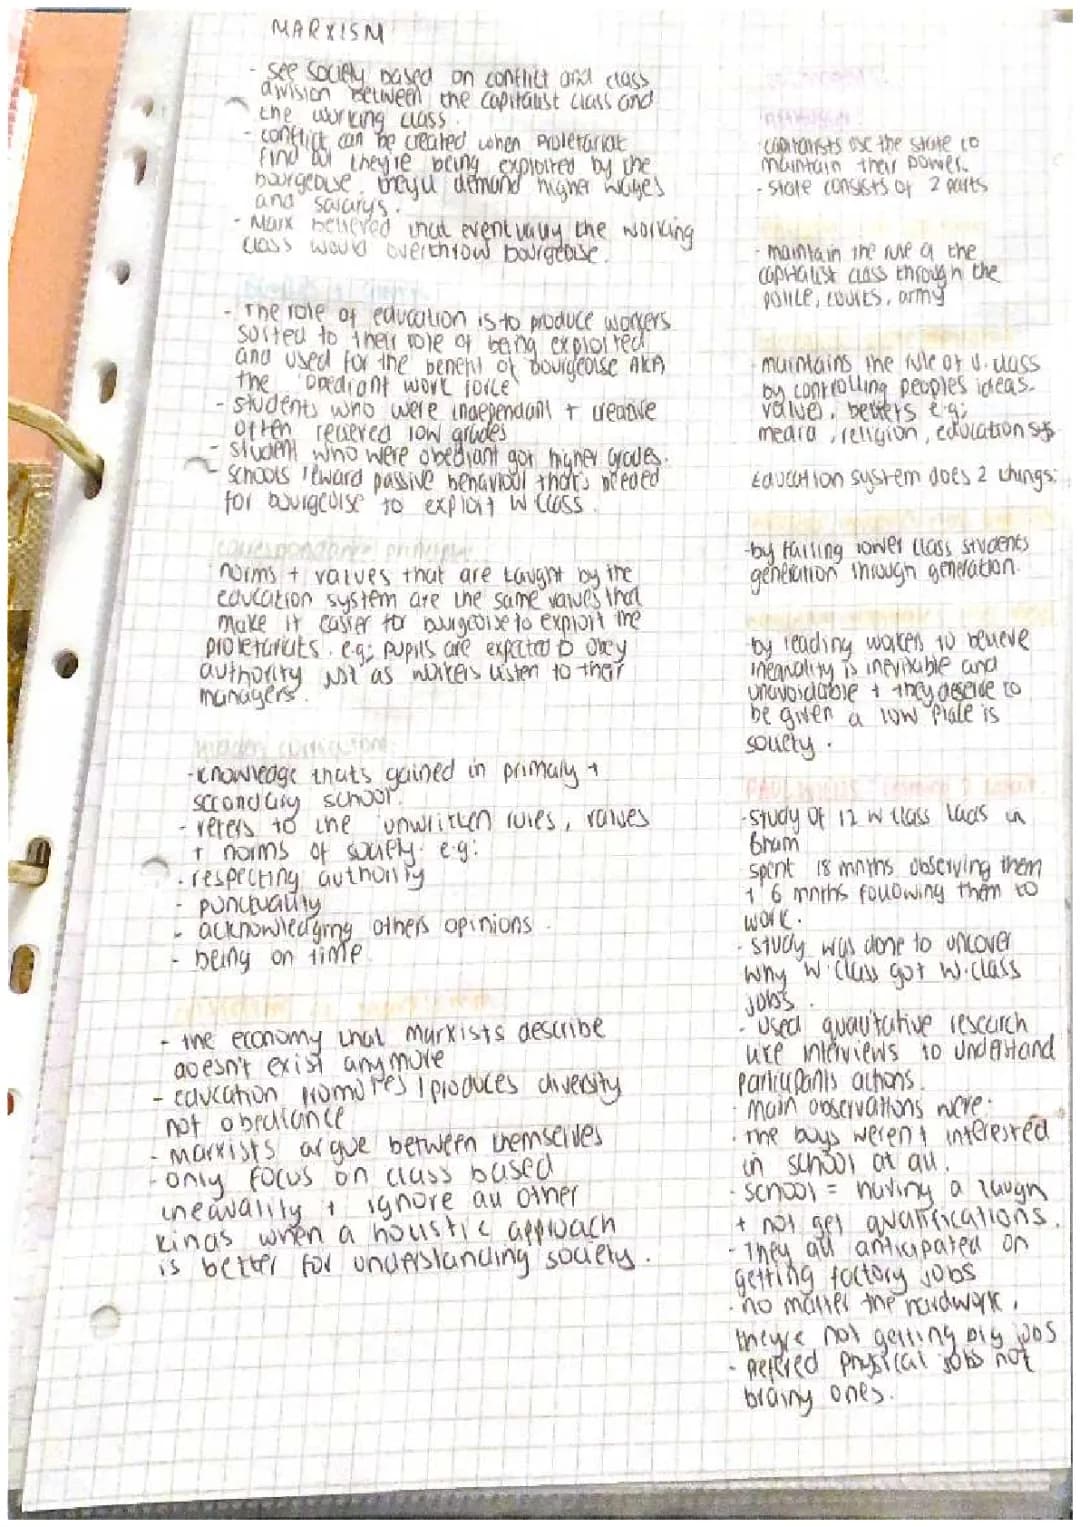 MARXISM
- see society based on conflict and class
division between the capitalist class and
the working class.
- conflict can be created when Proletariat
find out they're being exploited by the
bourgeoise. they'll demand higher wages
and salarys.
- Marx believed that eventually the working
class would overthrow bourgeoise.
- The role of education is to produce workers
suited to their role of being exploited
and used for the benefit of bourgeoise AKA
the 'obediant work force'
- students who were independant + creative
often recieved low grades
- student who were obediant got higher grades.
- schools reward passive behaviour that's needed
for bourgeoise to exploit w class.
correspondance principle
norms + values that are taught by the
education system are the same values that
make it easier for bourgeoise to exploit the
proletariats. e.g: pupils are expected to obey
authority just as workers listen to their
managers.
hidden curriculum:
- knowledge thats gained in primary +
secondary school.
- refers to the unwritten rules, values
+ norms of society. e.g:
- respecting authority
- punctuality
- acknowledging others opinions.
- being on time.
- the economy that marxists describe
doesn't exist anymore
- education promotes / produces diversity
not obediance
- marxists argue between themselves
- only focus on class based
inequality + ignore all other
kinds when a houstic approach
is better for understanding society.
capitalists use the state to
maintain their power.
- state consists of 2 parts
- maintain the rule of the
capitalist class through the
police, courts, army
- maintains the rule of u. class
by controlling peoples ideas.
values, beliefs e.g:
media, religion, education sys
Education system does 2 things:
- by failing lower class students
generation through generation.
- by leading wokers to believe
inequality is inevitable and
unavoidable + they deserve to
be given a low place is
society.
- study of 12 w class lads in
Bham
spent 18 mnths observing them
+ 6 mnths following them to
work.
- study was done to uncover
why w.class got w.class
jobs.
- used qualitative research
like interviews to understand
participants actions.
- main observations were:
- the boys weren't interested
in school at all.
- school = having a laugh
+ not get qualifications.
- They all anticipated on
getting factory jobs
- no matter the hardwork,
theyre not getting big jobs
- prefered physical jobs not
brainy ones.